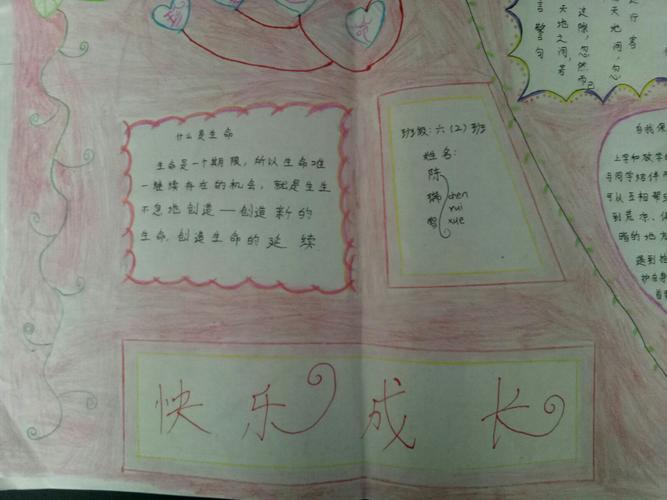 言警句
天地之间,若
过隙,忽然而已
天地间,忽
行客
什么是生命
生命是一个期限,所以生命唯
一继续存在的机会,就是生生
不息地创造——创造新的
生命,创造生命的延续
班级:六(2)班
姓名:
陈 chen
瑞 rui
雪 xue
自我保
上学和放学
与同学结伴
可以互相帮
到荒凉、
暗的地
遇到
护自身
快乐成长